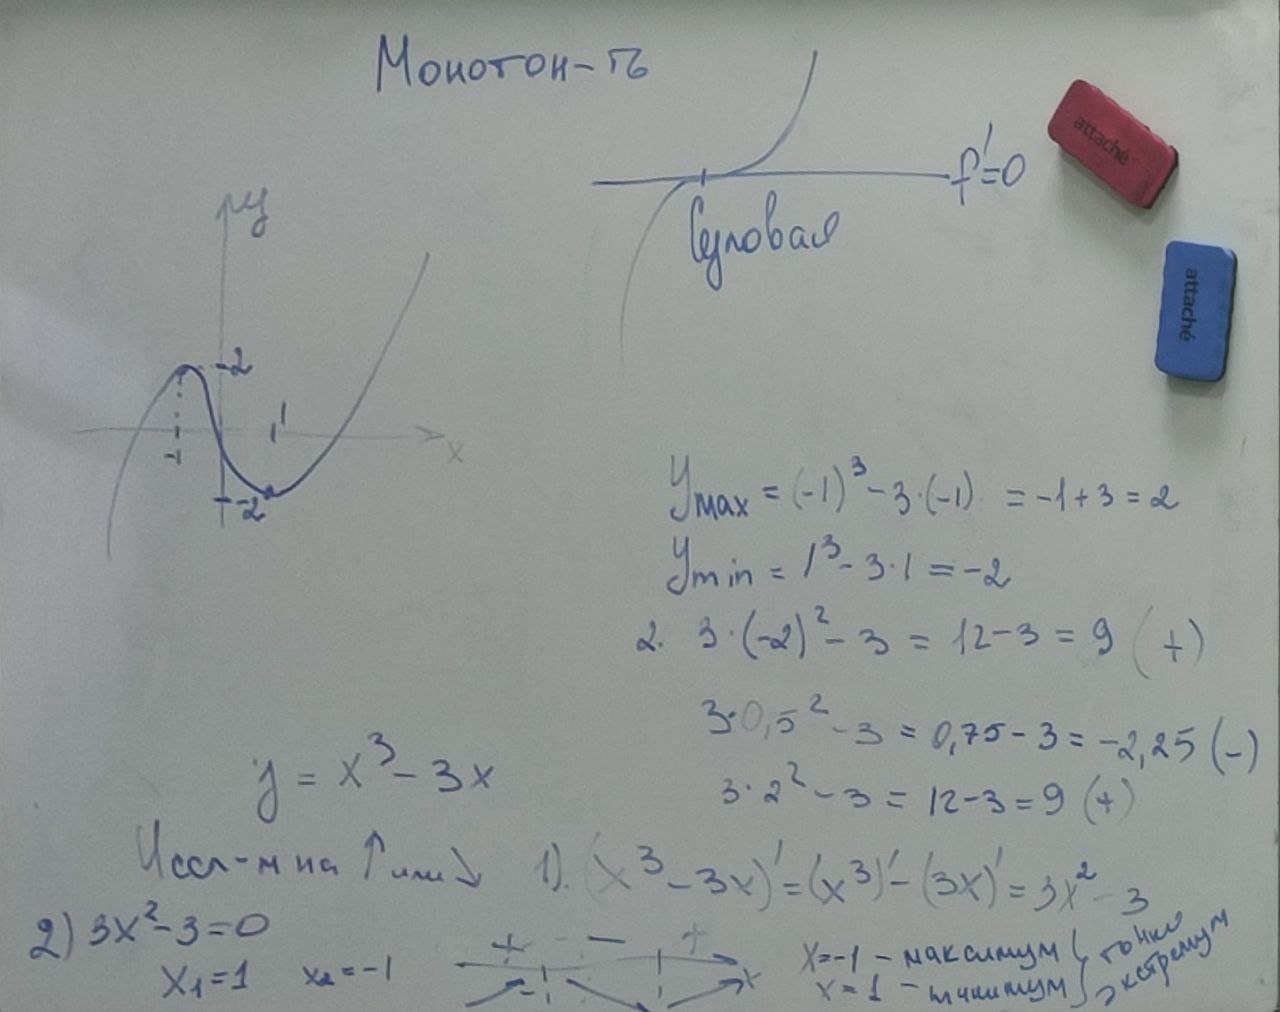 Монотон-ть
f'=0
attaché
attaché
Суловая
y
2
1
-1
x
-2
y max = (-1)³ - 3·(-1) = -1+3 = 2
y min = 1³ - 3·1 = -2
2. 3·(-2)² - 3 = 12-3 = 9 (+)
3·0,5² - 3 = 0,75 - 3 = -2,25 (-)
3·2² - 3 = 12-3 = 9 (+)
y = x³ - 3x
Иссл-м на ↑ или ↘ 1). (x³ - 3x)' = (x³)' - (3x)' = 3x² - 3
2) 3x² - 3 = 0
x₁ = 1 x₂ = -1
+ - +
-1 1 x
x=-1 - максимум
x=1 - минимум
точки
экстремум